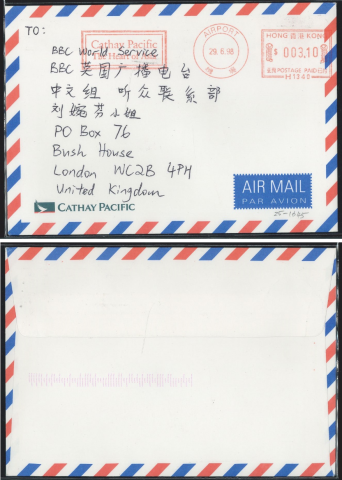 TO:
Cathay Pacific
The Heart of Asia
AIRPORT
29.6.98
HONG 香港 KONG
$ 003.10
POSTAGE PAID
BBC World Service
BBC 英国广播电台
中文组 听众联系部
刘婉芬小姐
PO Box 76
Bush House
London WC2B 4PH
United Kingdom
CATHAY PACIFIC
AIR MAIL
PAR AVION